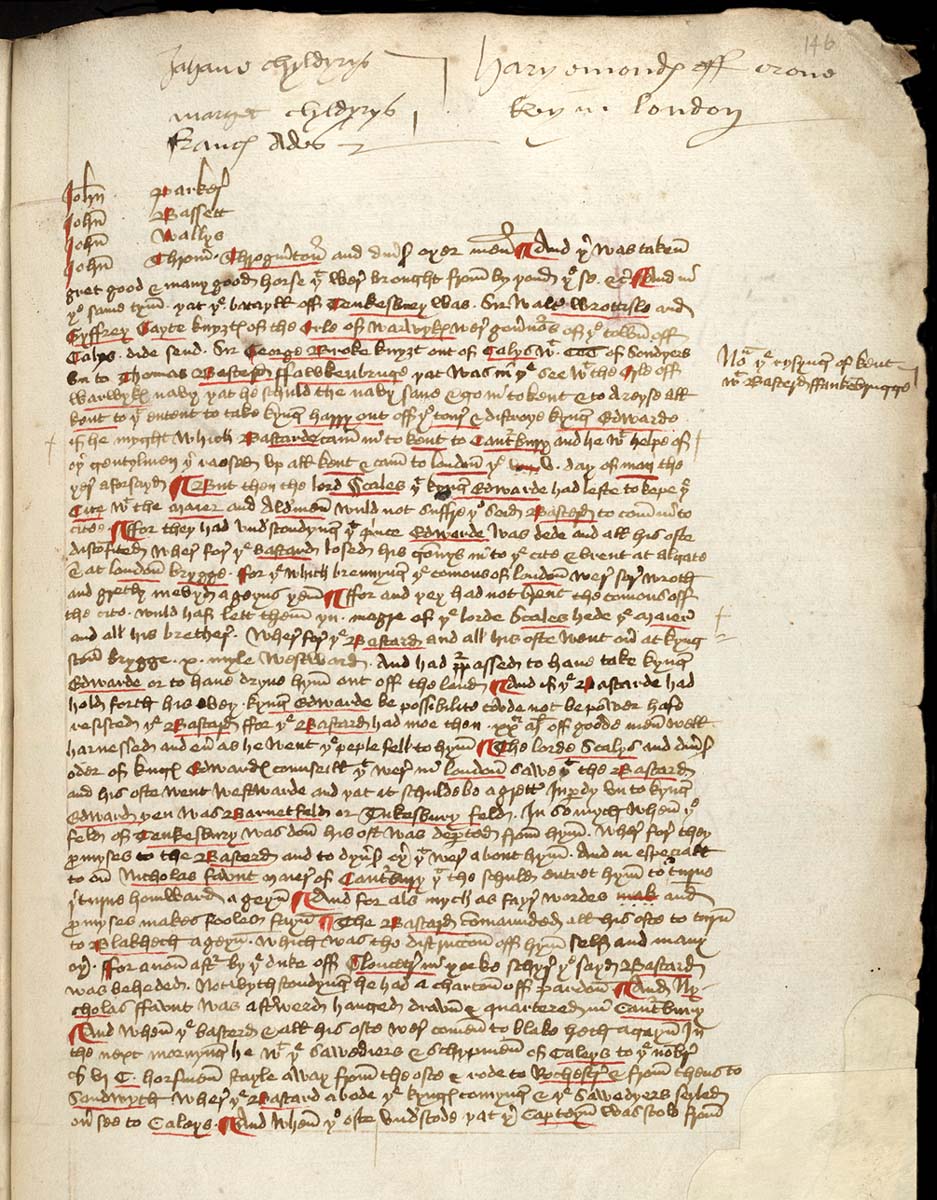 146
Jahane Chyldyrys
Hary emond off crone
marget chyldyrys
key in london
Franc Ades
John Parker
John Bassett
John Wallys
John Throgmton and dius oyer men And yͤ was taken
gret good & many good horse yᵗ wer brought from by yond yͤ se &c And in
yͤ same tym yat yͤ batayll off Teukesbury was Sir Walt Wrottisle and
Gyffrey Gayte knyȝts of the Erle of Warwyks wer gounos of yͤ town off
Calys dide send Sir George Broke knyȝt out of Calys wᵗ CCC of Sondyers
vn to Thomas Basterd ffawkenbruge yat was in yͤ see wᵗ the Erle off
Warwyks navy yat he schuld the navy save & go in to kent & to dreyse all
kent to yᵗ entent to take kyng harry out off yͤ tour & distroye kyng Edwarde
if he myght Which Bastarde cam in to kent to Cantbury and he wᵗ helpe of
oyͬ gentylmen yͬ raesed vp all kent & cam to london yͤ v day of may the
yer aforsayd But then the lord Scales yᵗ kyng Edwarde had lefte to kepe yͤ
Cite wᵗ the maier and Aldmen wuld not suffre yͤ seid Basterd to com in to
cite ffor they had vndstondyng yᵗ prince Edwarde was dede and all his oste
discofited Wher for yͤ Bastard losed his gonnys in to yͤ cite & brent at algate
& at london brygge For yͤ which brennyng yͤ comons of london wer sor wroth
and gretly meved ageyns yem ffor and yey had not brent the comons off
the cite wuld haf lett them yn magre of yͤ lorde Scales hede yͤ maier
and all his brether Wher for yͤ Bastard and all his oste went ou at kyng
ston brygge x myle westward And had ppassed to have take kyng
Edwarde or to have dryue hym out off the lond And if yͤ Bastarde had
hold forth his wey kyng Edwarde be possibilite coude not be power hafd
resisted yͤ Basterd ffor yͤ Bastard had moe then xxᵗⁱ off goode men well
harnessed and eu as he went yͤ peple fell to hym The lorde Scalys and diues
oder of kyngs Edwards counseill yᵗ wer in london sawe yᵗ the Bastard
and his oste went westwarde and yat it schulde be a grett Inpdy vn to kyng
Edward yen was Barnetfeld or Tukesbury feld In so mych when yͤ
feld of Teukesbury was don his ost was depted from hym Wher for they
pmyses to the Basterd and to dyus oyͬ yᵗ wer about hym And in especiall
to on Nicholas faunt maier of Cantbury yᵗ the schuld entret hym to turne
yͬ turne homward ageyn And for als mych as fayr wordes mak and
pmyses makes fooles fayn The Bastard comaunded all his oste to turn
to Blakheth ageyn which was the distruccon off hym self and many
oyͬ ffor anon aft by yͤ duke off Glouceter in yorke schyr yͤ sayd Bastard
was beheded Notwythstondyng he had a charter off pardon And Ny
cholas ffaunt was aftweed hanged drawn & quartered in Cantbury
And when yͤ basterd & all his oste wer comen to blake heth agayn In
the next mornyng he wᵗ yͤ sawediers & schypmen of Caleys to yͤ nober
of vj C horsmen stayle away from the oste & rode to Rochester & from thens to
Sandwyth wher yͤ Bastard abode yͤ kyngs comyng & yͤ sawedyers seyled
ou see to Caleys And when yͤ oste vndstode yat yͬ Capteyn was stole from
Noᵗ yͤ rysyng of kent
wᵗ Basterd ffaukebrugge